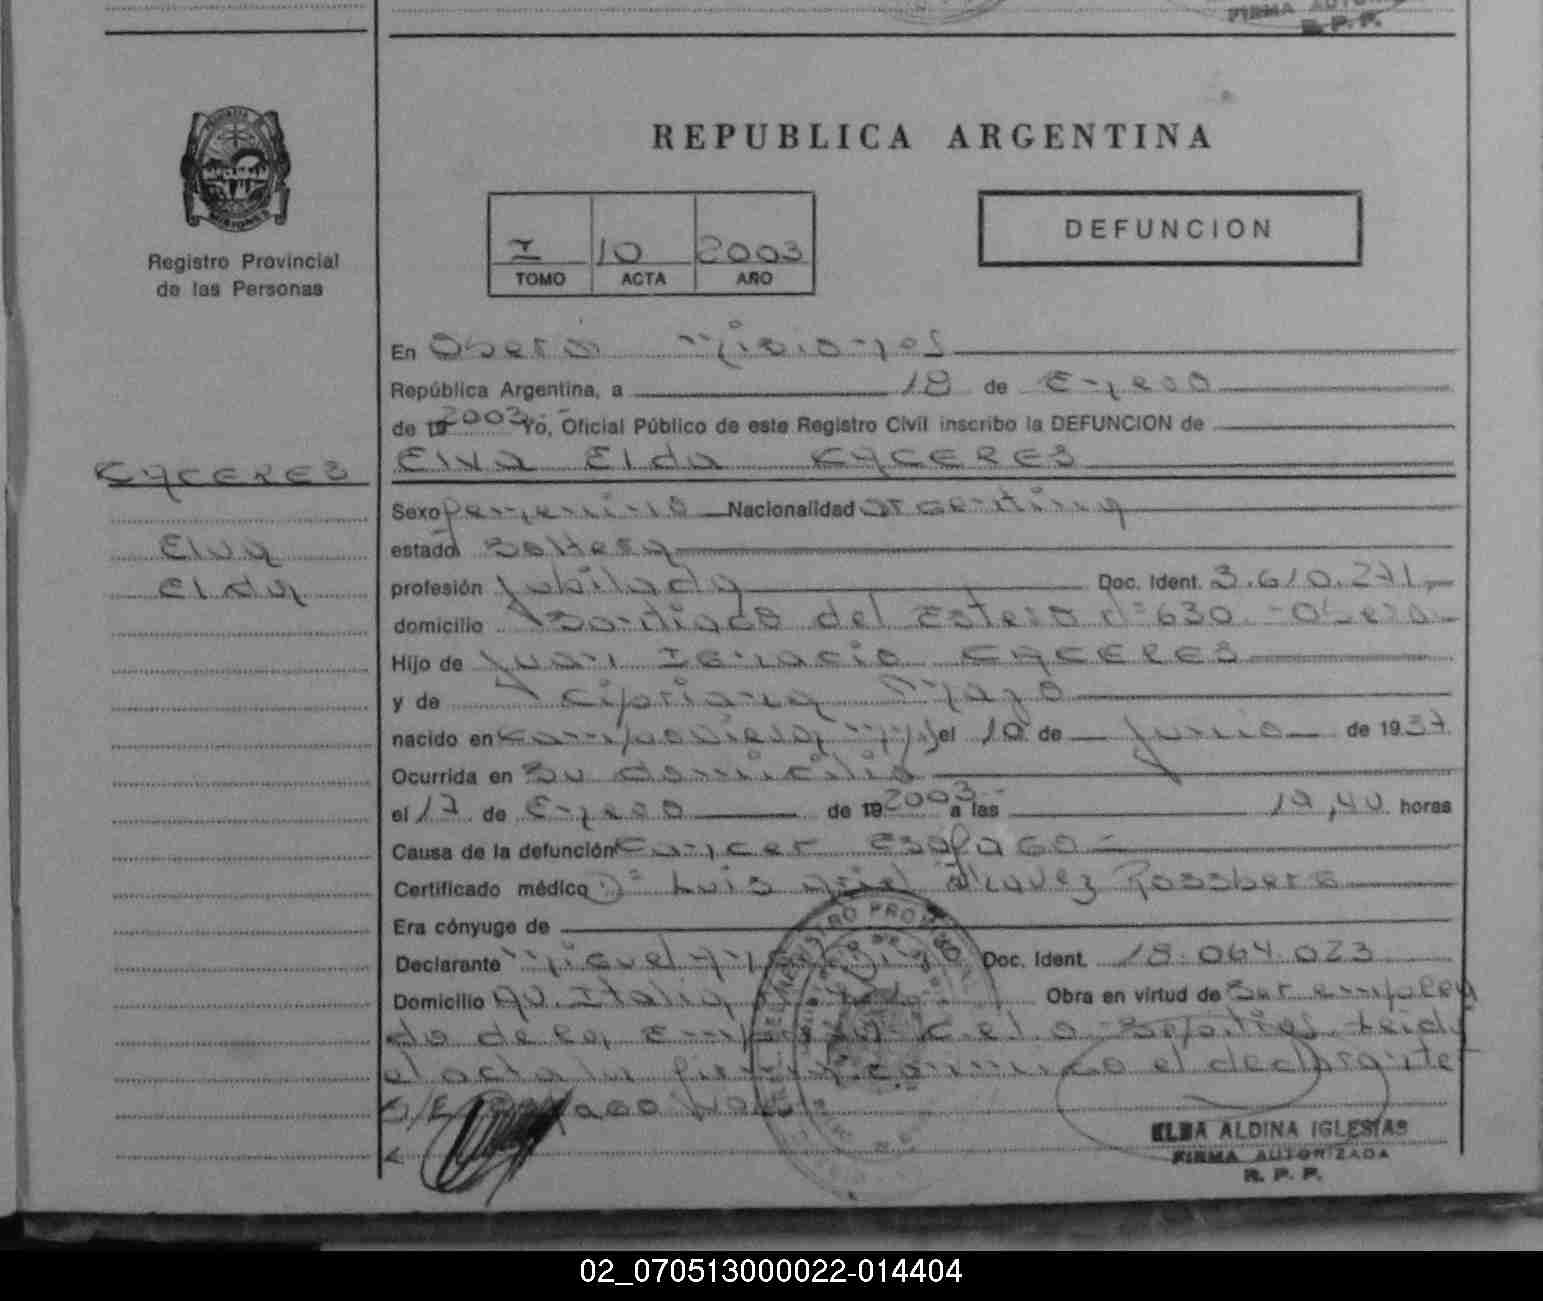 FIRMA AUTORIZADA
R. P. P.
REPUBLICA ARGENTINA
DEFUNCION
I 10 2003
TOMO ACTA AÑO
Registro Provincial
de las Personas
En Oberá Misiones
República Argentina, a 18 de Enero
de 19 2003 Yo, Oficial Público de este Registro Civil inscribo la DEFUNCION de
CACERES Elva Elda CACERES
Sexo femenino Nacionalidad argentina
Elva estado soltera
Elda profesión Jubilada Doc. Ident. 3.610.271
domicilio Santiago del Estero nº 630 - Oberá
Hijo de Juan Ignacio CACERES
y de Cipriana
nacido en el 10 de Junio de 1937
Ocurrida en su domicilio
el 17 de Enero de 19 2003 a las 19,40 horas
Causa de la defunción Cancer Esofago
Certificado médico Dº Luis Ariel Rossberg
Era cónyuge de
Declarante Miguel Doc. Ident. 18.064.023
Domicilio Av. Italia Obra en virtud de Ser emplea
do de la Empresa Leida
el acta la firma conmigo el declarante
ELBA ALDINA IGLESIAS
FIRMA AUTORIZADA
R. P. P.
02_070513000022-014404